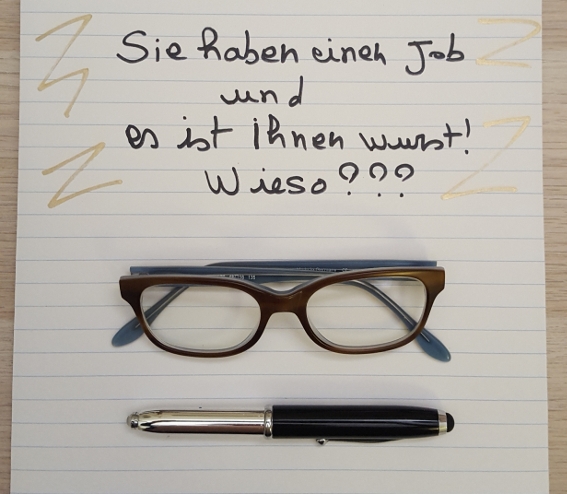 Sie haben einen Job
und
es ist Ihnen wurst!
Wieso???